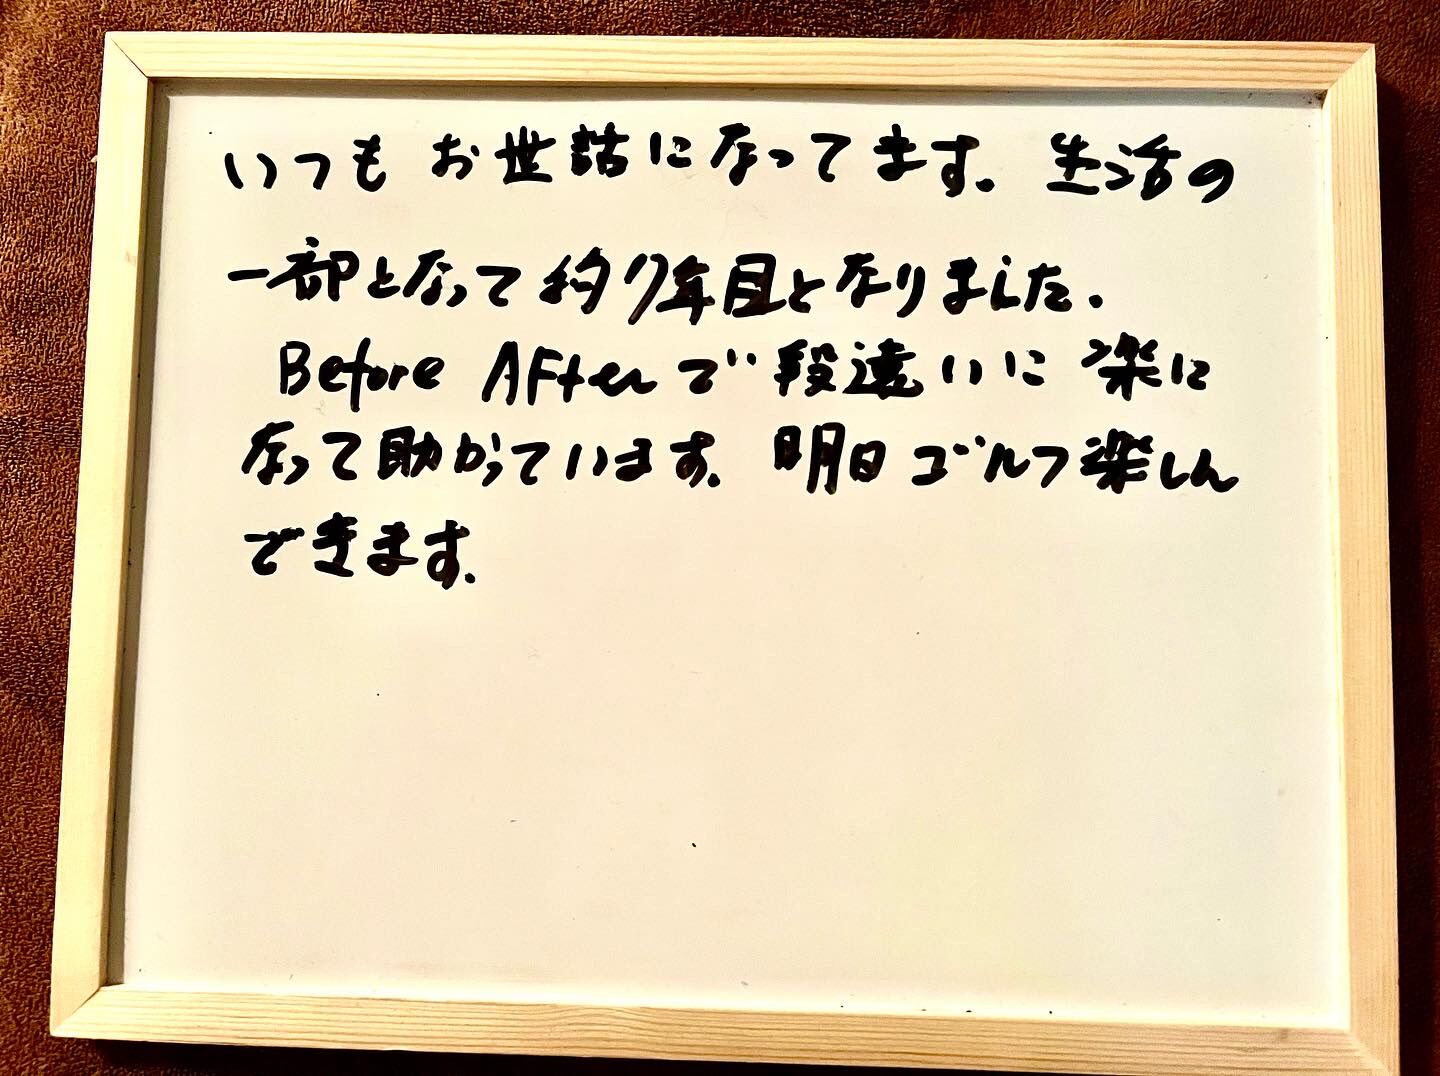 いつもお世話になってます。生活の
一部となって約7年目となりました.
Before Afterで段違いに楽に
なって助かっています. 明日ゴルフ楽しん
できます.